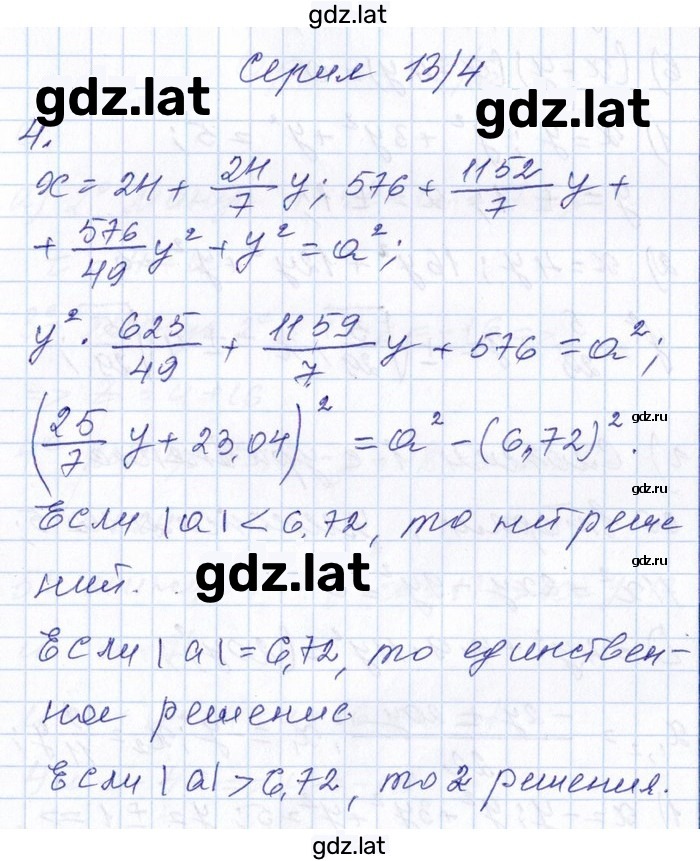 gdz.lat
Серия 13/4
gdz.lat
gdz.lat
4.
x = 24 + 24/7 y; 576 + 1152/7 y +
+ 576/49 y² + y² = a²;
y² · 625/49 + 1159/7 y + 576 = a²;
gdz.ru
(25/7 y + 23,04)² = a² - (6,72)².
gdz.ru
Если |a| < 6,72, то нет реше
gdz.ru
ний.
gdz.lat
Если |a| = 6,72, то единствен-
ное решение
Если |a| > 6,72, то 2 решения.
gdz.lat